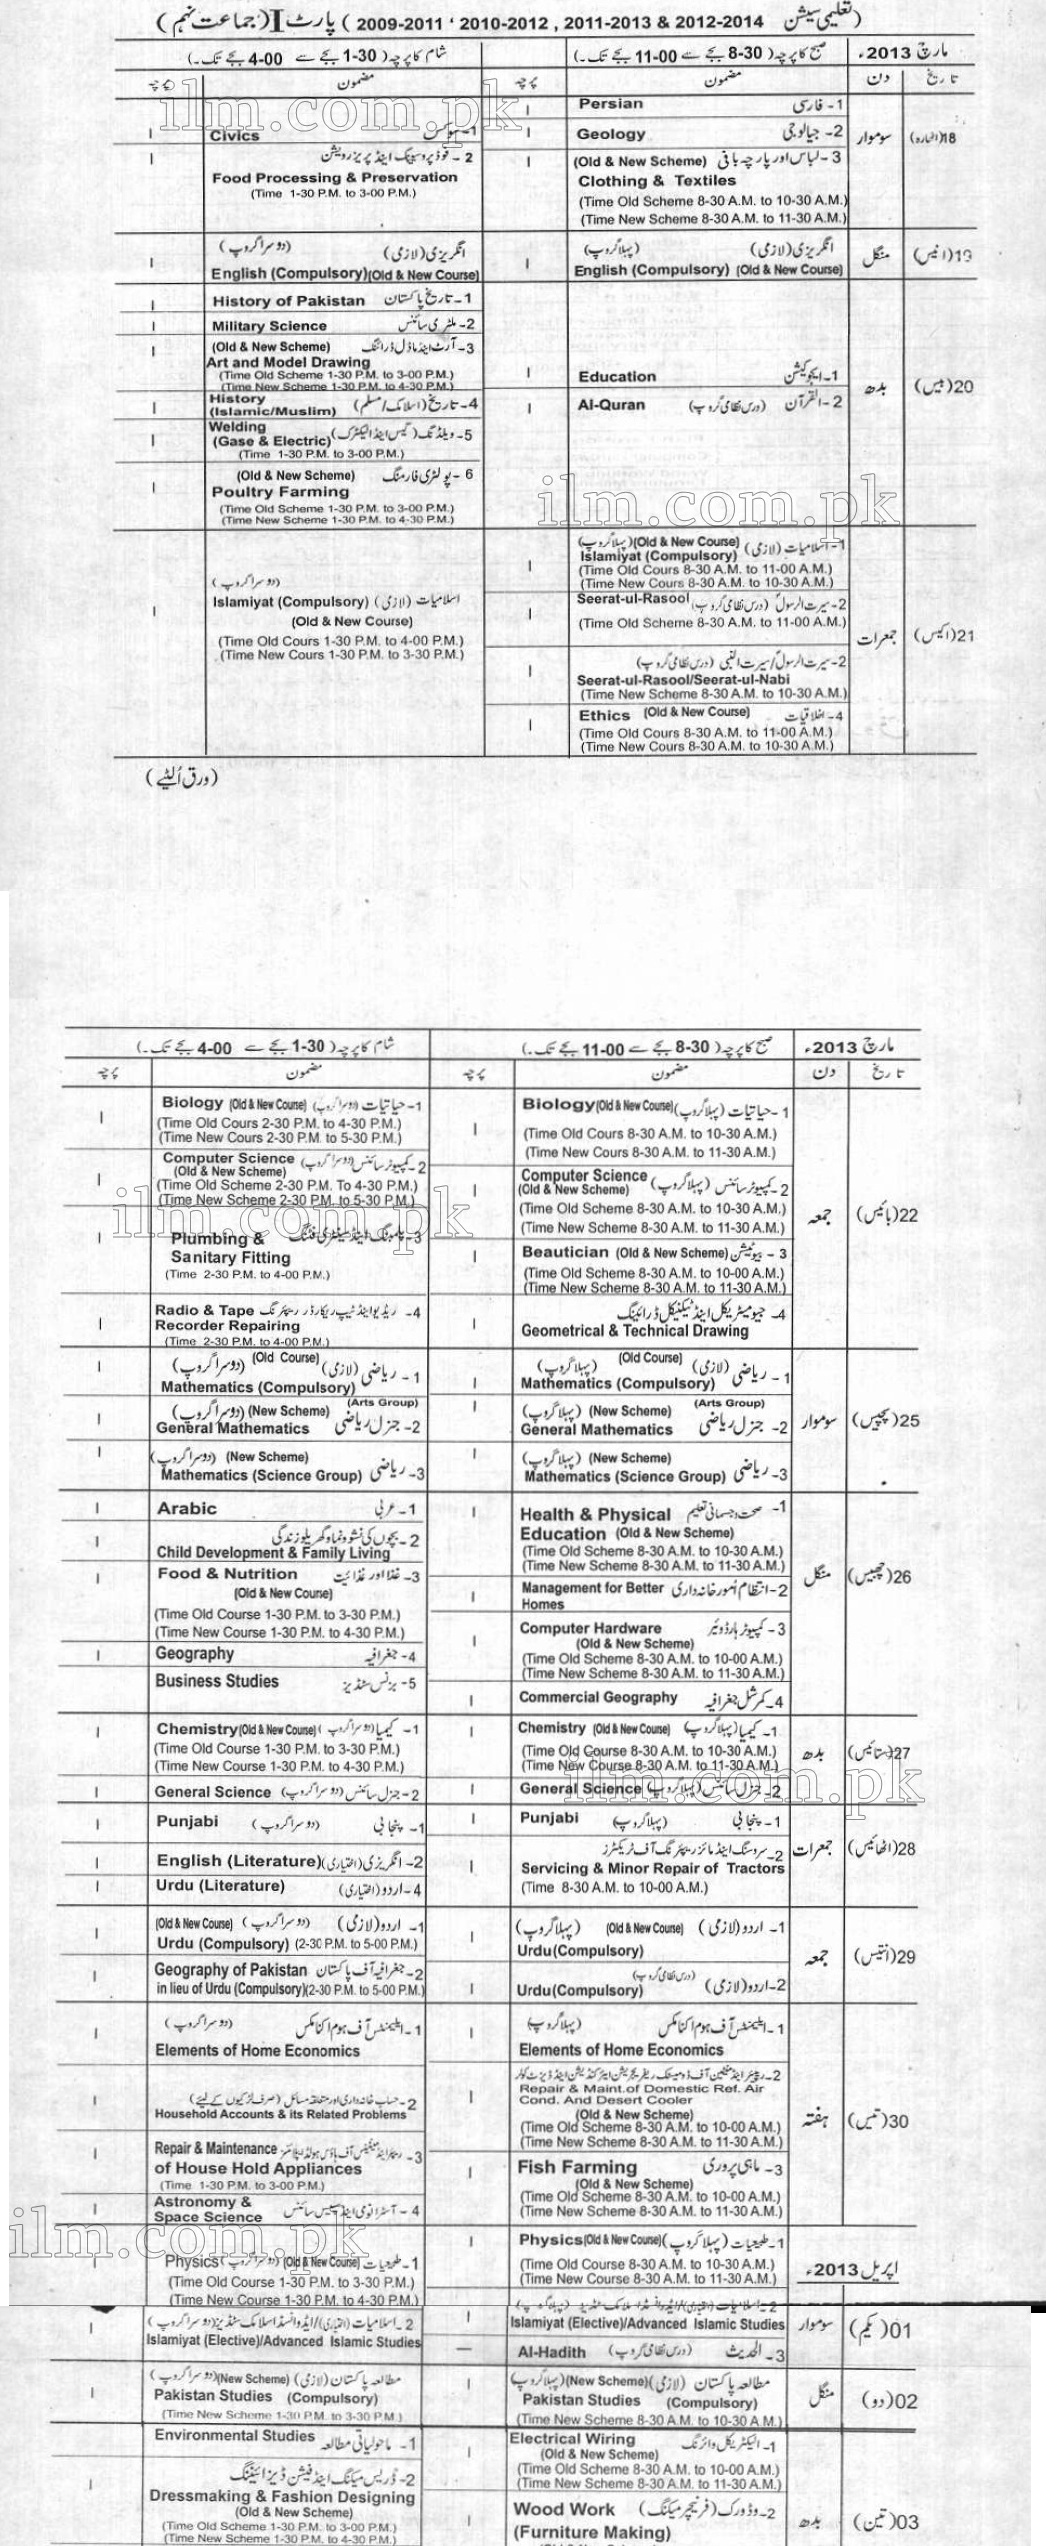 (تعلیمی سیشن 2012-2014 & 2011-2013 , 2010-2012 ، 2009-2011 ) پارٹ I (جماعت نہم)
مارچ 2013ء صبح کا پرچہ (8-30 بجے سے 11-00 بجے تک۔) شام کا پرچہ (1-30 بجے سے 4-00 بجے تک۔)
تاریخ دن مضمون پرچہ مضمون پرچہ
18(اٹھارہ) سوموار
1- فارسی Persian I
2- جیالوجی Geology I
3- لباس اور پارچہ بافی (Old & New Scheme) I
Clothing & Textiles
(Time Old Scheme 8-30 A.M. to 10-30 A.M.)
(Time New Scheme 8-30 A.M. to 11-30 A.M.)
1- سوکس Civics I
2- فوڈ پروسیسنگ اینڈ پریزرویشن I
Food Processing & Preservation
(Time 1-30 P.M. to 3-00 P.M.)
19(انیس) منگل
انگریزی (لازمی) (پہلا گروپ)
English (Compulsory) (Old & New Course) I
انگریزی (لازمی) (دوسرا گروپ)
English (Compulsory)(Old & New Course) I
20(بیس) بدھ
1- ایجوکیشن Education I
2- القرآن (درس نظامی گروپ) Al-Quran I
1- تاریخ پاکستان History of Pakistan I
2- ملٹری سائنس Military Science I
3- آرٹ اینڈ ماڈل ڈرائنگ (Old & New Scheme) I
Art and Model Drawing
(Time Old Scheme 1-30 P.M. to 3-00 P.M.)
(Time New Scheme 1-30 P.M. to 4-30 P.M.)
4- تاریخ (اسلامک/مسلم) History I
(Islamic/Muslim)
5- ویلڈنگ (گیس اینڈ الیکٹرک) Welding I
(Gase & Electric)
(Time 1-30 P.M. to 3-00 P.M.)
6- پولٹری فارمنگ (Old & New Scheme) I
Poultry Farming
(Time Old Scheme 1-30 P.M. to 3-00 P.M.)
(Time New Scheme 1-30 P.M. to 4-30 P.M.)
21(اکیس) جمعرات
(پہلا گروپ) (Old & New Course)
1- اسلامیات (لازمی) Islamiyat (Compulsory) I
(Time Old Cours 8-30 A.M. to 11-00 A.M.)
(Time New Cours 8-30 A.M. to 10-30 A.M.)
2- سیرت الرسول (درس نظامی گروپ) Seerat-ul-Rasool I
(Time Old Scheme 8-30 A.M. to 11-00 A.M.)
2- سیرت الرسول/سیرت النبی (درس نظامی گروپ) I
Seerat-ul-Rasool/Seerat-ul-Nabi
(Time New Scheme 8-30 A.M. to 10-30 A.M.)
4- اخلاقیات (Old & New Course) Ethics I
(Time Old Cours 8-30 A.M. to 11-00 A.M.)
(Time New Cours 8-30 A.M. to 10-30 A.M.)
(دوسرا گروپ)
اسلامیات (لازمی) Islamiyat (Compulsory) I
(Old & New Course)
(Time Old Cours 1-30 P.M. to 4-00 P.M.)
(Time New Cours 1-30 P.M. to 3-30 P.M.)
(ورق اُلٹیے)
مارچ 2013ء صبح کا پرچہ (8-30 بجے سے 11-00 بجے تک۔) شام کا پرچہ (1-30 بجے سے 4-00 بجے تک۔)
تاریخ دن مضمون پرچہ مضمون پرچہ
22(بائیس) جمعہ
1- حیاتیات (پہلا گروپ) Biology(Old & New Course) I
(Time Old Cours 8-30 A.M. to 10-30 A.M.)
(Time New Cours 8-30 A.M. to 11-30 A.M.)
2- کمپیوٹر سائنس (پہلا گروپ) Computer Science I
(Old & New Scheme)
(Time Old Scheme 8-30 A.M. to 10-30 A.M.)
(Time New Scheme 8-30 A.M. to 11-30 A.M.)
3- بیوٹیشن Beautician (Old & New Scheme) I
(Time Old Scheme 8-30 A.M. to 10-00 A.M.)
(Time New Scheme 8-30 A.M. to 11-30 A.M.)
4- جیومیٹریکل اینڈ ٹیکنیکل ڈرائنگ I
Geometrical & Technical Drawing
1- حیاتیات (دوسرا گروپ) Biology (Old & New Course) I
(Time Old Cours 2-30 P.M. to 4-30 P.M.)
(Time New Cours 2-30 P.M. to 5-30 P.M.)
2- کمپیوٹر سائنس (دوسرا گروپ) Computer Science I
(Old & New Scheme)
(Time Old Scheme 2-30 P.M. To 4-30 P.M.)
(Time New Scheme 2-30 P.M. to 5-30 P.M.)
3- پلمبنگ اینڈ سینٹری فٹنگ Plumbing & I
Sanitary Fitting
(Time 2-30 P.M. to 4-00 P.M.)
4- ریڈیو اینڈ ٹیپ ریکارڈر ریپئرنگ Radio & Tape I
Recorder Repairing
(Time 2-30 P.M. to 4-00 P.M.)
25(پچیس) سوموار
1- ریاضی (لازمی) (پہلا گروپ) (Old Course) I
Mathematics (Compulsory)
(Arts Group)
2- جنرل ریاضی (New Scheme) (پہلا گروپ) I
General Mathematics
(New Scheme) (پہلا گروپ)
3- ریاضی Mathematics (Science Group) I
1- ریاضی (لازمی) (دوسرا گروپ) (Old Course) I
Mathematics (Compulsory)
(Arts Group)
2- جنرل ریاضی (New Scheme) (دوسرا گروپ) I
General Mathematics
(New Scheme) (دوسرا گروپ)
3- ریاضی Mathematics (Science Group) I
26(چھبیس) منگل
1- صحت و جسمانی تعلیم Health & Physical I
Education (Old & New Scheme)
(Time Old Scheme 8-30 A.M. to 10-30 A.M.)
(Time New Scheme 8-30 A.M. to 11-30 A.M.)
2- انتظام اُمور خانہ داری Management for Better I
Homes
3- کمپیوٹر ہارڈوئیر Computer Hardware I
(Old & New Scheme)
(Time Old Scheme 8-30 A.M. to 10-00 A.M.)
(Time New Scheme 8-30 A.M. to 11-30 A.M.)
4- کمرشل جغرافیہ Commercial Geography I
1- عربی Arabic I
2- بچوں کی نشوونما و گھریلو زندگی I
Child Development & Family Living
3- غذا اور غذائیت Food & Nutrition I
(Old & New Course)
(Time Old Course 1-30 P.M. to 3-30 P.M.)
(Time New Course 1-30 P.M. to 4-30 P.M.)
4- جغرافیہ Geography I
5- بزنس سٹڈیز Business Studies
27(ستائیس) بدھ
1- کیمیا (پہلا گروپ) Chemistry (Old & New Course) I
(Time Old Course 8-30 A.M. to 10-30 A.M.)
(Time New Course 8-30 A.M. to 11-30 A.M.)
2- جنرل سائنس (پہلا گروپ) General Science I
1- کیمیا (دوسرا گروپ) Chemistry(Old & New Course) I
(Time Old Course 1-30 P.M. to 3-30 P.M.)
(Time New Course 1-30 P.M. to 4-30 P.M.)
2- جنرل سائنس (دوسرا گروپ) General Science I
28(اٹھائیس) جمعرات
1- پنجابی (پہلا گروپ) Punjabi I
2- سروسنگ اینڈ مائنر ریپئرنگ آف ٹریکٹرز I
Servicing & Minor Repair of Tractors
(Time 8-30 A.M. to 10-00 A.M.)
1- پنجابی (دوسرا گروپ) Punjabi I
2- انگریزی (اختیاری) English (Literature) I
4- اردو (اختیاری) Urdu (Literature) I
29(انتیس) جمعہ
1- اردو (لازمی) (Old & New Course) (پہلا گروپ) I
Urdu(Compulsory)
(درس نظامی گروپ)
2- اردو (لازمی) Urdu(Compulsory) I
1- اردو (لازمی) (دوسرا گروپ) (Old & New Course) I
Urdu (Compulsory) (2-30 P.M. to 5-00 P.M.)
2- جغرافیہ آف پاکستان Geography of Pakistan I
in lieu of Urdu (Compulsory)(2-30 P.M. to 5-00 P.M.)
30(تیس) ہفتہ
1- ایلیمنٹس آف ہوم اکنامکس (پہلا گروپ) I
Elements of Home Economics
Repair & Maint.of Domestic Ref. Air I
Cond. And Desert Cooler
(Old & New Scheme)
(Time Old Scheme 8-30 A.M. to 10-00 A.M.)
(Time New Scheme 8-30 A.M. to 11-30 A.M.)
3- ماہی پروری Fish Farming I
(Old & New Scheme)
(Time Old Scheme 8-30 A.M. to 10-00 A.M.)
(Time New Scheme 8-30 A.M. to 11-30 A.M.)
1- ایلیمنٹس آف ہوم اکنامکس (دوسرا گروپ) I
Elements of Home Economics
2- حساب خانہ داری اور متعلقہ مسائل (صرف لڑکیوں کے لیے) I
Household Accounts & its Related Problems
Repair & Maintenance I
of House Hold Appliances
(Time 1-30 P.M. to 3-00 P.M.)
4- آسٹرانومی اینڈ سپیس سائنس Astronomy & I
Space Science
اپریل 2013ء
01(یکم) سوموار
1- طبیعیات (پہلا گروپ) Physics(Old & New Course) I
(Time Old Course 8-30 A.M. to 10-30 A.M.)
(Time New Course 8-30 A.M. to 11-30 A.M.)
Islamiyat (Elective)/Advanced Islamic Studies I
3- الحدیث (درس نظامی گروپ) Al-Hadith —
1- طبیعیات (Old & New Course) (دوسرا گروپ) Physics I
(Time Old Course 1-30 P.M. to 3-30 P.M.)
(Time New Course 1-30 P.M. to 4-30 P.M.)
2- اسلامیات (اختیاری)/ایڈوانسڈ اسلامک سٹڈیز (دوسرا گروپ) I
Islamiyat (Elective)/Advanced Islamic Studies
02(دو) منگل
مطالعہ پاکستان (لازمی) (New Scheme) (پہلا گروپ) I
Pakistan Studies (Compulsory)
(Time New Scheme 8-30 A.M. to 10-30 A.M.)
مطالعہ پاکستان (لازمی) (New Scheme) (دوسرا گروپ) I
Pakistan Studies (Compulsory)
(Time New Scheme 1-30 P.M. to 3-30 P.M.)
03(تین) بدھ
1- الیکٹریکل وائرنگ Electrical Wiring I
(Old & New Scheme)
(Time Old Scheme 8-30 A.M. to 10-00 A.M.)
(Time New Scheme 8-30 A.M. to 11-30 A.M.)
2- وڈ ورک (فرنیچر میکنگ) Wood Work I
(Furniture Making)
1- ماحولیاتی مطالعہ Environmental Studies
2- ڈریس میکنگ اینڈ فیشن ڈیزائننگ I
Dressmaking & Fashion Designing
(Old & New Scheme)
(Time Old Scheme 1-30 P.M. to 3-00 P.M.)
(Time New Scheme 1-30 P.M. to 4-30 P.M.)
ilm.com.pk
ilm.com.pk
ilm.com.pk
ilm.com.pk
ilm.com.pk